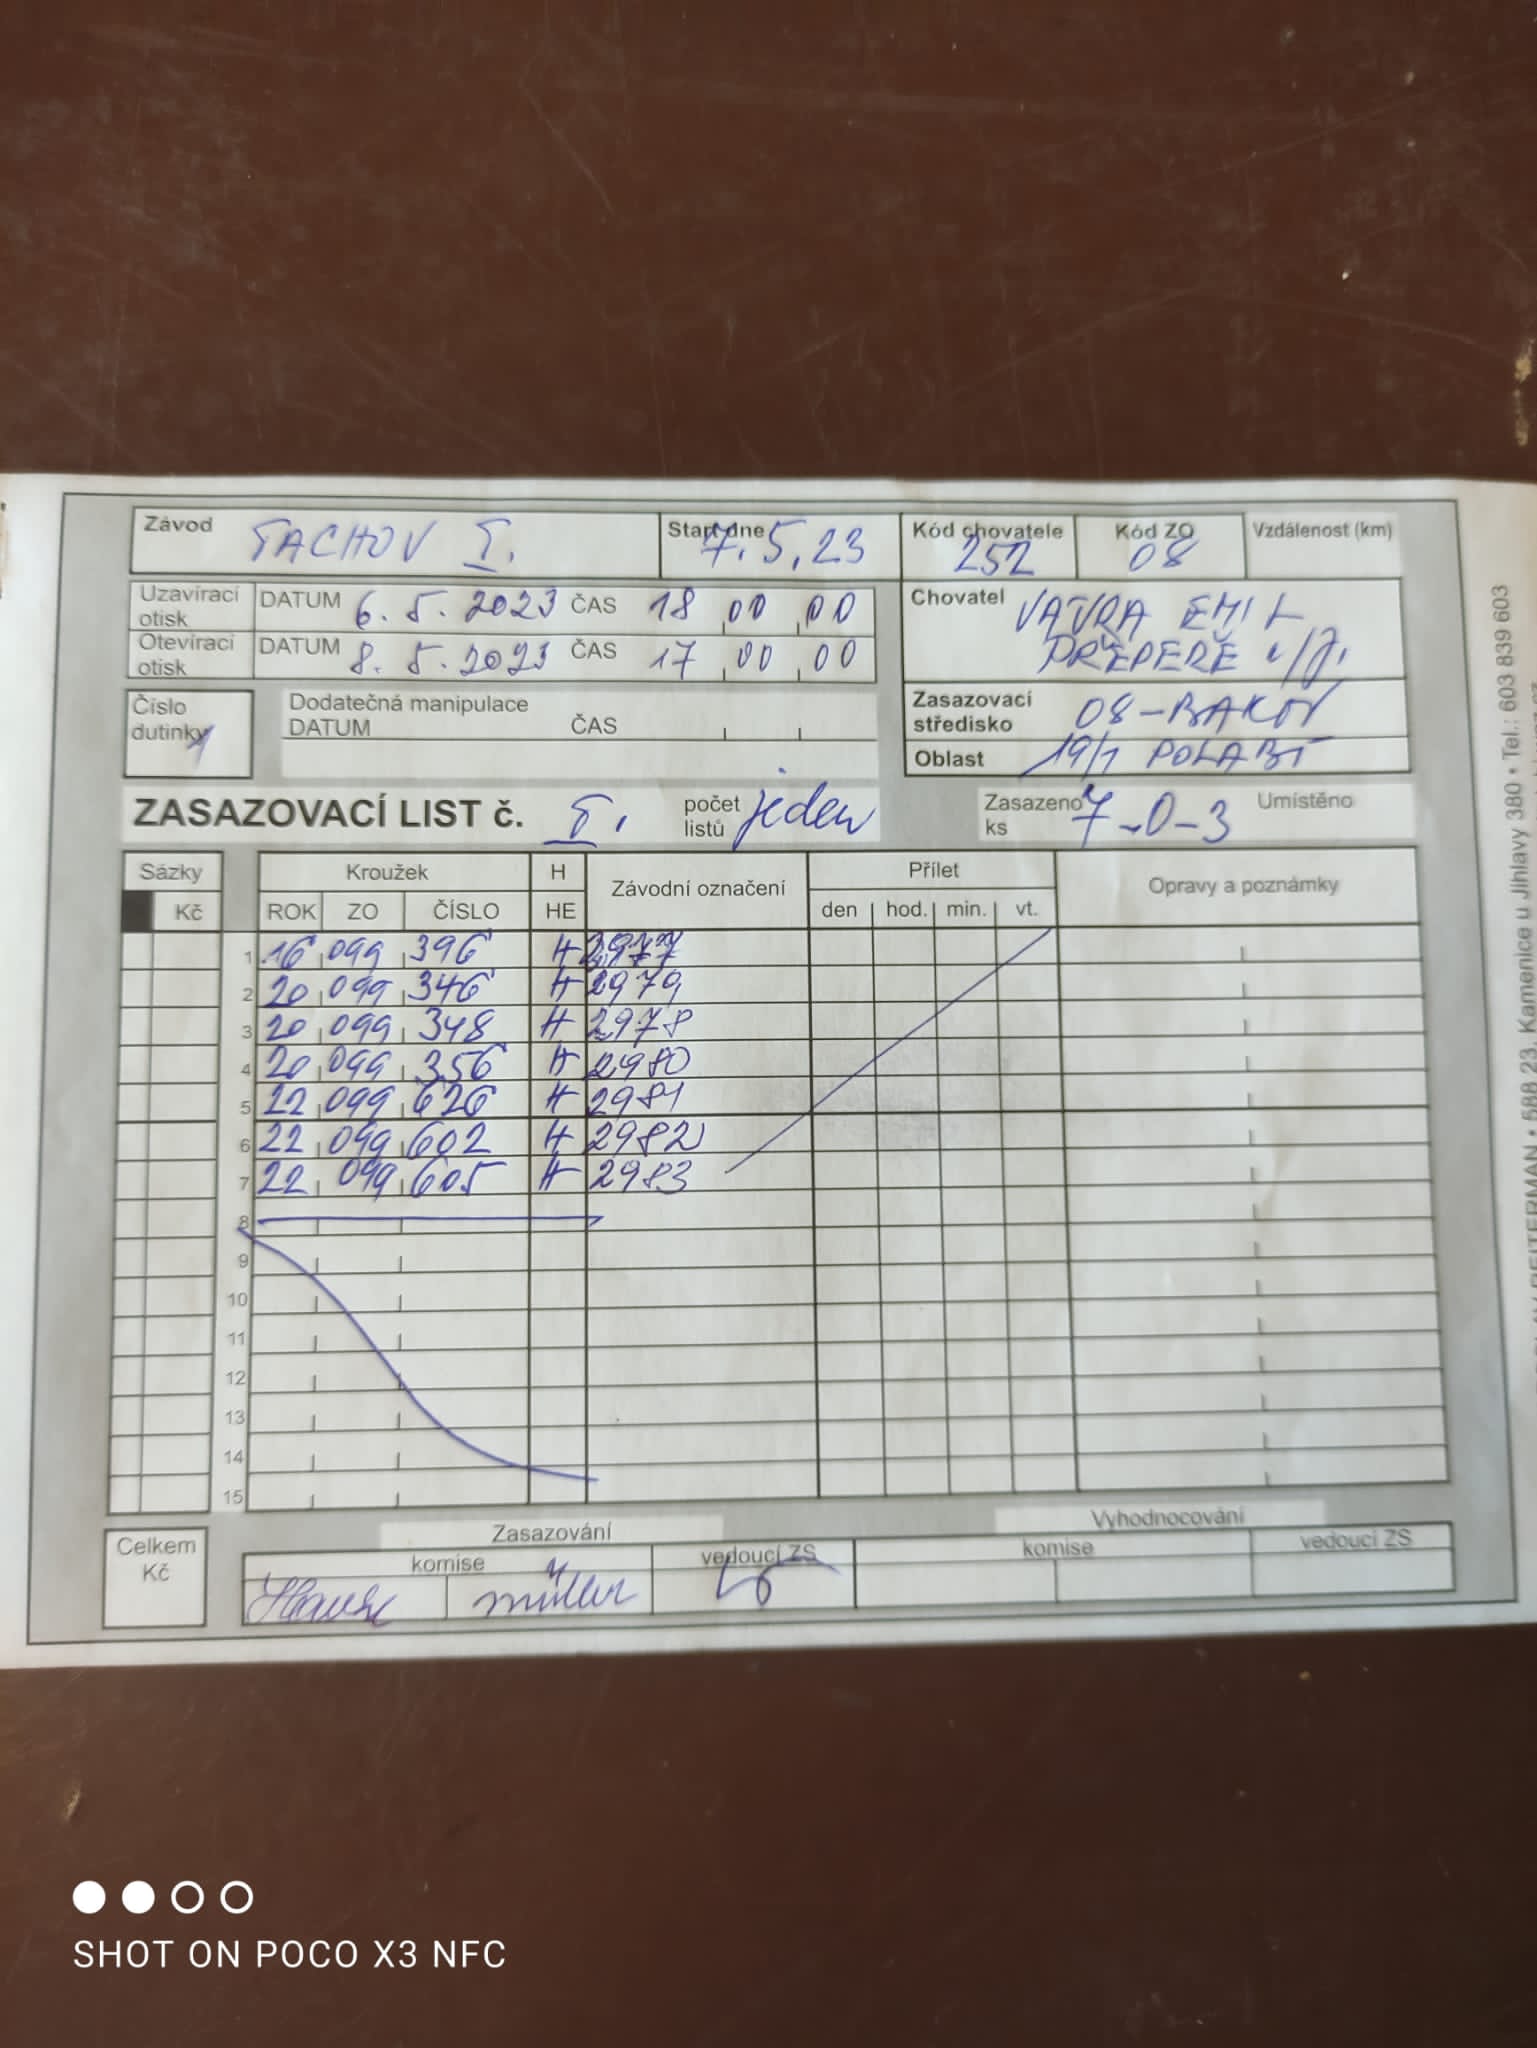 Závod TACHOV I. Start dne 7.5.23 Kód chovatele 252 Kód ZO 08 Vzdálenost (km)
Uzavírací otisk DATUM 6. 5. 2023 ČAS 18 00 00
Otevírací otisk DATUM 8. 5. 2023 ČAS 17 00 00
Chovatel VAVRA EMIL
PŘEPEŘE
Číslo dutinky 1
Dodatečná manipulace
DATUM ČAS
Zasazovací středisko 08-BAKOV
Oblast 19/1 POLABÍ
ZASAZOVACÍ LIST č. I. počet listů jeden Zasazeno ks 7-0-3 Umístěno
Sázky Kroužek H Závodní označení Přílet Opravy a poznámky
Kč ROK ZO ČÍSLO HE den hod. min. vt.
1 16 099 396 H 2977
2 20 099 346 H 2979
3 20 099 348 H 2978
4 20 099 356 H 2980
5 22 099 626 H 2981
6 22 099 602 H 2982
7 22 099 605 H 2983
8
9
10
11
12
13
14
15
Celkem Kč
Zasazování Vyhodnocování
komise vedoucí ZS komise vedoucí ZS
müller
REITERMAN • 588 23, Kamenice u Jihlavy 380 • Tel.: 603 839 603
SHOT ON POCO X3 NFC